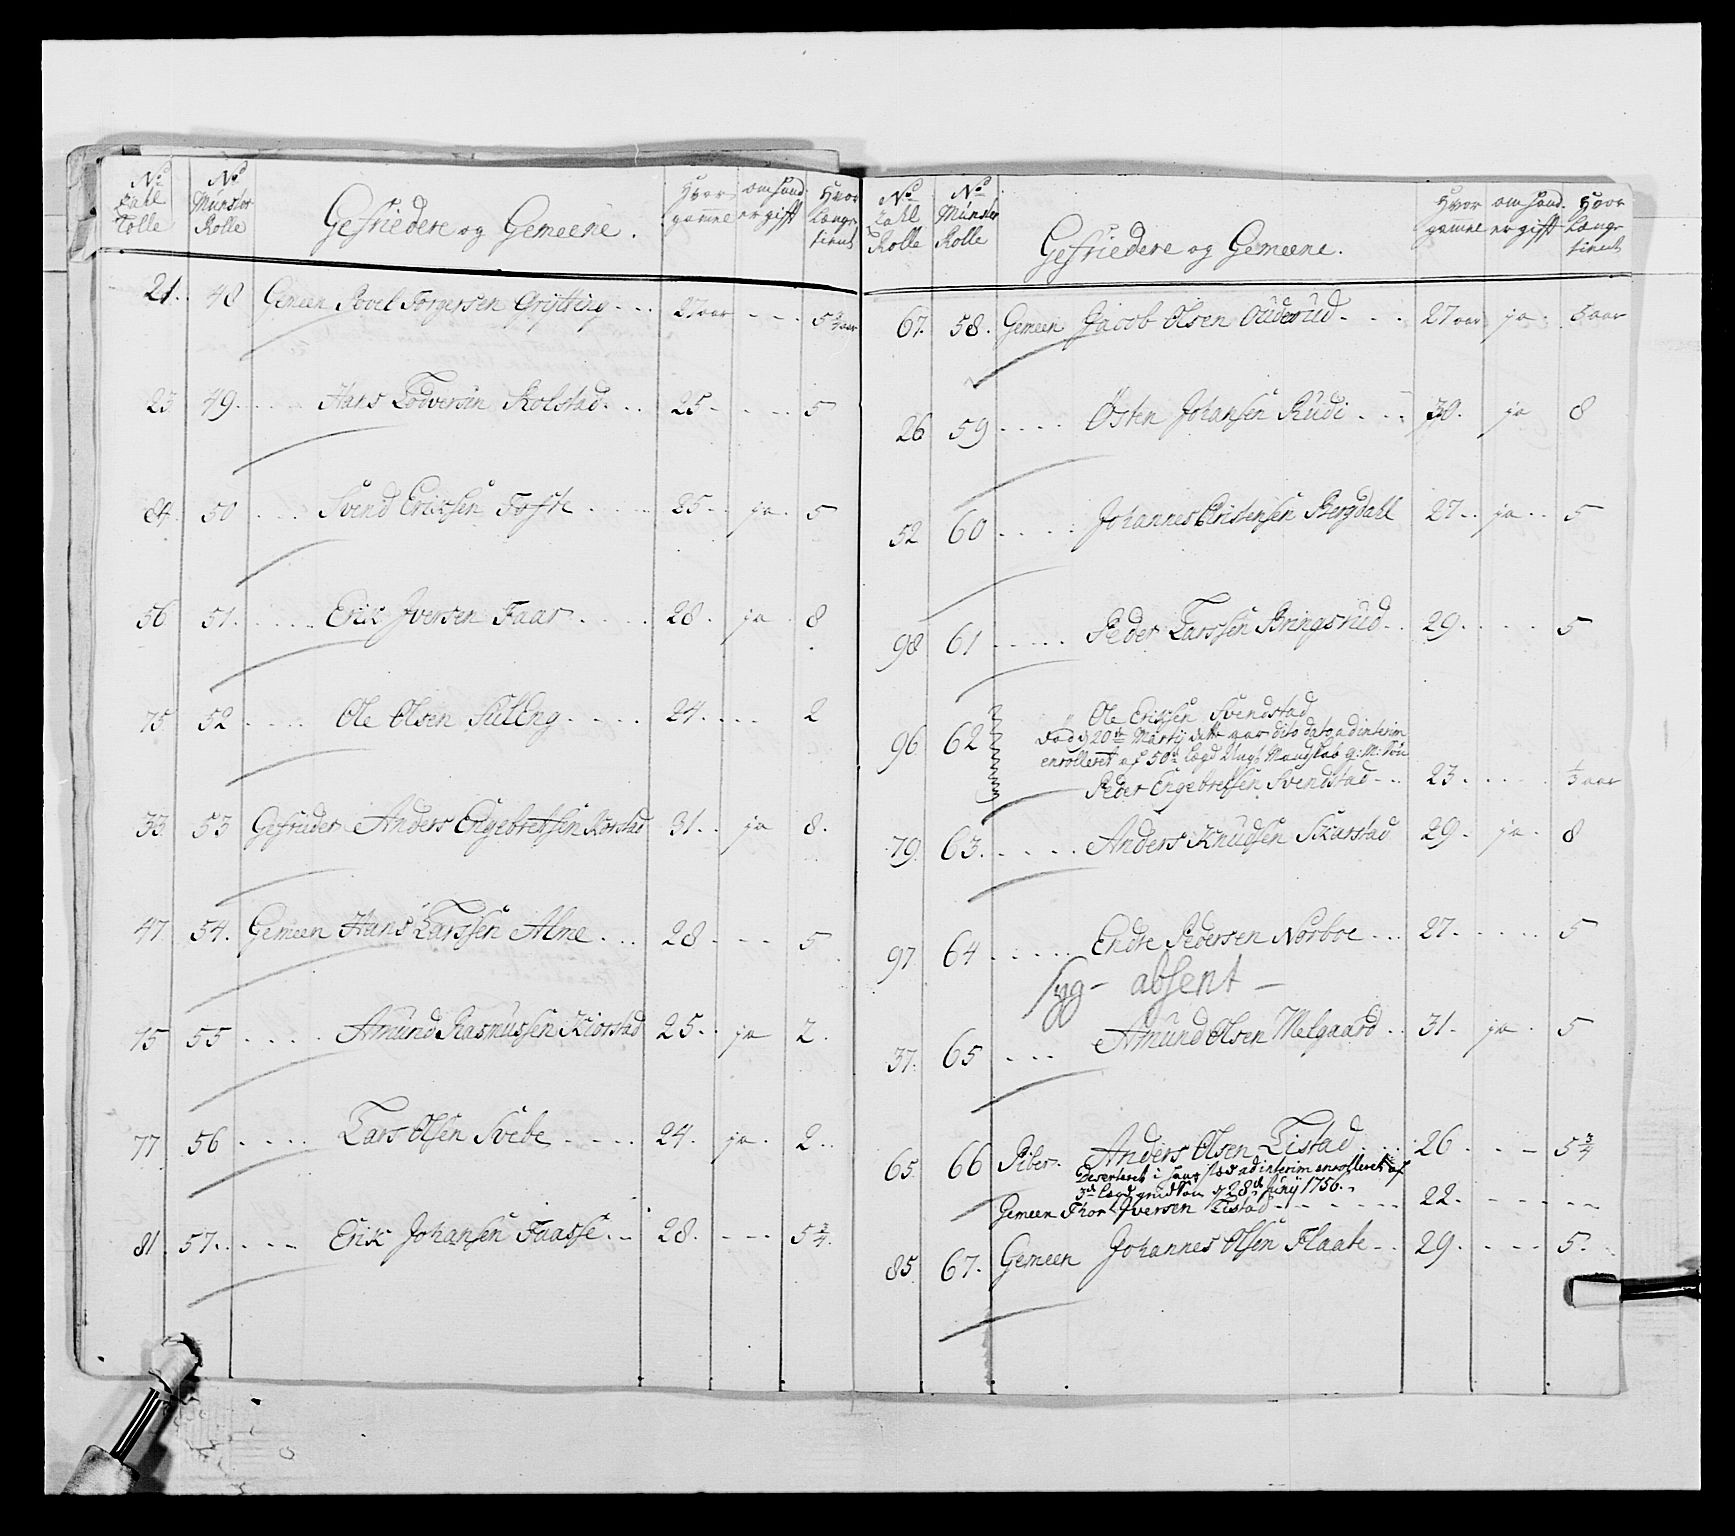 No Zahl Rolle | No Münster Rolle | Gefriedere og Gemeene. | Hvor gamel | om hand er gift | Hvor længe tient
21. 48 Gemeen Povel Torgersen Grÿtting - - . 27 aar - - - 5 3/4 aar
23. 49. - - - Hans Lodversen Kolstad. - . 25 - - - - 5
84. 50 . - - Svend Erichsen Tofte - - - 25 - ja. 5
56 51. - - - Erik Iversen Faar. - - - 28. ja. 8
75 52 - - - Ole Olsen - - - 24. - - - 2
33. 53 Gefrieder Anders Engebretsen Korstad 31. . ja 8.
47. 54. Gemeen Hans Larssen Alme. . . 28 - - - 5
15 55 - - - - Amund Rasmussen Kiorstad 25. . ja 2.
77 56 - - - - Lars Olsen Svebe - - - 24. ja. 2. .
81. 57. . - - - Erik Johansen Faasse. . - 28. - - - 5 3/4.
No Zahl Rolle | No Münster Rolle | Gefriedere og Gemeene. | Hvor gamel | om hand er gift | Hvor længe tient
67. 58. Gemeen Jacob Olsen Ouderud. - - 27 aar ja. 5 aar
26 59 - - - - Østen Johansen Rudi - - - 30. ja 8
52 60 - - - - Johannes Cristensen Bergdahl 27 - . ja - . 5
98 61 - - - - Peder Larssen Bringsrud. . 29. - - - 5
96. 62 Ole Erichsen Svendstad
Død d 20de Martij dette aar dito dato ad interim
enrolleret af 50de Lægd Ungt Mandskab
Peder Engebretsen Svendstad - . . 23. - - - 1/3 aar
79. 63. - - - Anders Knudsen Skarstad 29. ja. 8
97. 64 - - - - Endre Pedersen Norboe - . . 27. - - - - 5
syg - absent -
37. 65 - - - Amund Olsen Melgaard . . 31. ja . 5
65. 66 Piber. Anders Olsen Listad . . . 26 - - - 5 3/4
Deserteret i hans sted ad interim enrolleret af
3de Lægd d 28de Junij 1756.
Gemeen Thor Iversen Listad - - - - - 22. - - - - -
85. 67. Gemeen Johannes Olsen Flaate - . 29. - - - 5.